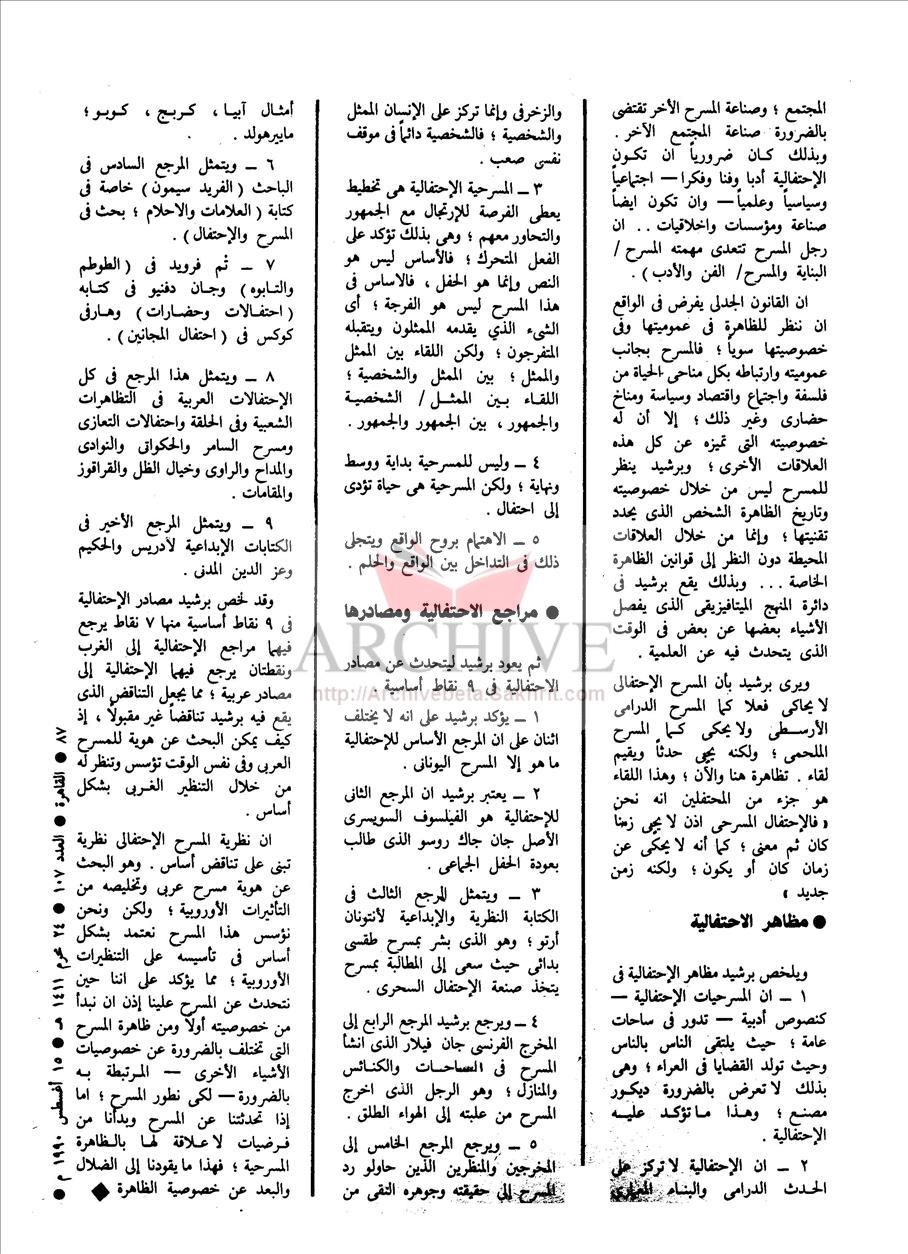 المجتمع ؛ وصناعة المسرح الأخر تقتضى
بالضرورة صناعة المجتمع الآخر .
وبذلك كان ضرورياً ان تكون
الإحتفالية أدبا وفنا وفكرا — اجتماعياً
وسياسياً وعلمياً — وان تكون ايضاً
صناعة ومؤسسات واخلاقيات . . ان
رجل المسرح تتعدى مهمته المسرح /
البناية والمسرح/ الفن والأدب ) .
ان القانون الجدلى يفرض فى الواقع
ان ننظر للظاهرة فى عموميتها وفى
خصوصيتها سوياً ؛ فالمسرح بجانب
عموميته وارتباطه بكل مناحى الحياة من
فلسفة واجتماع واقتصاد وسياسة ومناخ
حضارى وغير ذلك ؛ إلا أن له
خصوصيته التى تميزه عن كل هذه
العلاقات الأخرى ؛ وبرشيد ينظر
للمسرح ليس من خلال خصوصيته
وتاريخ الظاهرة الشخص الذى يحدد
تقنيتها ؛ وإنما من خلال العلاقات
المحيطة دون النظر إلى قوانين الظاهرة
الخاصة ... وبذلك يقع برشيد فى
دائرة المنهج الميتافيزيقى الذى يفصل
الأشياء بعضها عن بعض فى الوقت
الذى يتحدث فيه عن العلمية .
ويرى برشيد بأن المسرح الإحتفالى
لا يحاكى فعلا كما المسرح الدرامى
الأرسطى ولا يحكى كما المسرح
الملحمى ؛ ولكنه يحيى حدثاً ويقيم
لقاء . تظاهرة هنا والآن ؛ وهذا اللقاء
هو جزء من المحتفلين انه نحن
« فالإحتفال المسرحى اذن لا يحيى زمنا
كان ثم معنى ؛ كما أنه لا يحكى عن
زمان كان أو يكون ؛ ولكنه زمن
جديد »
● مظاهر الاحتفالية
ويلخص برشيد مظاهر الإحتفالية فى
١ — ان المسرحيات الإحتفالية —
كنصوص أدبية — تدور فى ساحات
عامة ؛ حيث يلتقى الناس بالناس
وحيث تولد القضايا فى العراء ؛ وهى
بذلك لا تعرض بالضرورة ديكور
مصنع ؛ وهذا ما تؤكد عليه
الإحتفالية .
٢ — ان الإحتفالية لا تركز على
الحدث الدرامى والبناء المعمارى
والزخرفى وإنما تركز على الإنسان الممثل
والشخصية ؛ فالشخصية دائماً فى موقف
نفسى صعب .
٣ — المسرحية الإحتفالية هى تخطيط
يعطى الفرصة للإرتجال مع الجمهور
والتحاور معهم ؛ وهى بذلك تؤكد على
الفعل المتحرك ؛ فالأساس ليس هو
النص وإنما هو الحفل ، فالاساس فى
هذا المسرح ليس هو الفرجة ؛ أى
الشىء الذي يقدمه الممثلون ويتقبله
المتفرجون ؛ ولكن اللقاء بين الممثل
والممثل ؛ بين الممثل والشخصية ؛
اللقاء بين الممثل / الشخصية
والجمهور ، بين الجمهور والجمهور .
٤ — وليس للمسرحية بداية ووسط
ونهاية ؛ ولكن المسرحية هى حياة تؤدى
إلى احتفال .
٥ — الاهتمام بروح الواقع ويتجلى
ذلك فى التداخل بين الواقع والحلم .
● مراجع الاحتفالية ومصادرها
ثم يعود برشيد ليتحدث عن مصادر
الاحتفالية فى ٩ نقاط أساسية
١ — يؤكد برشيد على انه لا يختلف
اثنان على ان المرجع الأساس للإحتفالية
ما هو إلا المسرح اليونانى .
٢ — يعتبر برشيد ان المرجع الثانى
للإحتفالية هو الفيلسوف السويسرى
الأصل جان جاك روسو الذى طالب
بعودة الحفل الجماعى .
٣ — ويتمثل المرجع الثالث فى
الكتابة النظرية والإبداعية لأنتونان
أرتو ؛ وهو الذى بشر بمسرح طقسى
بدائى حيث سعى إلى المطالبة بمسرح
يتخذ صنعة الإحتفال السحرى .
٤ — ويرجع برشيد المرجع الرابع إلى
المخرج الفرنسى جان فيلار الذى انشأ
المسرح فى الساحات والكنائس
والمنازل ؛ وهو الرجل الذى اخرج
المسرح من علبته إلى الهواء الطلق .
٥ — ويرجع المرجع الخامس إلى
المخرجين والمنظرين الذين حاولو رد
المسرح إلى حقيقته وجوهره النقى من
أمثال آبيا ، كريج ، كوبو ؛
مايرهولد .
٦ — ويتمثل المرجع السادس فى
الباحث ( الفريد سيمون ) خاصة فى
كتابة ( العلامات والاحلام ؛ بحث فى
المسرح والإحتفال ) .
٧ — ثم فرويد فى ( الطوطم
والتابوه ) وجان دفنيو فى كتابه
( احتفالات وحضارات ) وهارفى
كوكس فى ( احتفال المجانين ) .
٨ — ويتمثل هذا المرجع فى كل
الإحتفالات العربية فى التظاهرات
الشعبية وفى الحلقة واحتفالات التعازى
ومسرح السامر والحكواتى والنوادى
والمداح والراوى وخيال الظل والقراقوز
والمقامات .
٩ — ويتمثل المرجع الأخير فى
الكتابات الإبداعية لآدريس والحكيم
وعز الدين المدنى .
وقد لخص برشيد مصادر الإحتفالية
فى ٩ نقاط أساسية منها ٧ نقاط يرجع
فيهما مراجع الإحتفالية إلى الغرب
ونقطتان يرجع فيهما الإحتفالية إلى
مصادر عربية ؛ مما يجعل التناقض الذى
يقع فيه برشيد تناقضاً غير مقبولاً ، إذ
كيف يمكن البحث عن هوية للمسرح
العربى وفى نفس الوقت تؤسس وتنظر له
من خلال التنظير الغربى بشكل
أساس .
ان نظرية المسرح الإحتفالى نظرية
تبنى على تناقض أساس . وهو البحث
عن هوية مسرح عربى وتخليصه من
التأثيرات الأوروبية ؛ ولكن ونحن
نؤسس هذا المسرح نعتمد بشكل
أساس فى تأسيسه على التنظيرات
الأوروبية ؛ مما يؤكد على اننا حين
نتحدث عن المسرح علينا إذن ان نبدأ
من خصوصيته أولاً ومن ظاهرة المسرح
التى تختلف بالضرورة عن خصوصيات
الأشياء الأخرى — المرتبطة به
بالضرورة — لكى نطور المسرح ؛ اما
إذا تحدثتنا عن المسرح وبدأنا من
فرضيات لا علاقة لها بالظاهرة
المسرحية ؛ فهذا ما يقودنا إلى الضلال
والبعد عن خصوصية الظاهرة ◆
٨٧ ● القاهرة ● العدد ١٠٧ ● ٢٤ محرم ١٤١١ هـ ● ١٥ أغسطس ١٩٩٠ م ●
ARCHIVE
http://Archivebeta.Sakhrit.com